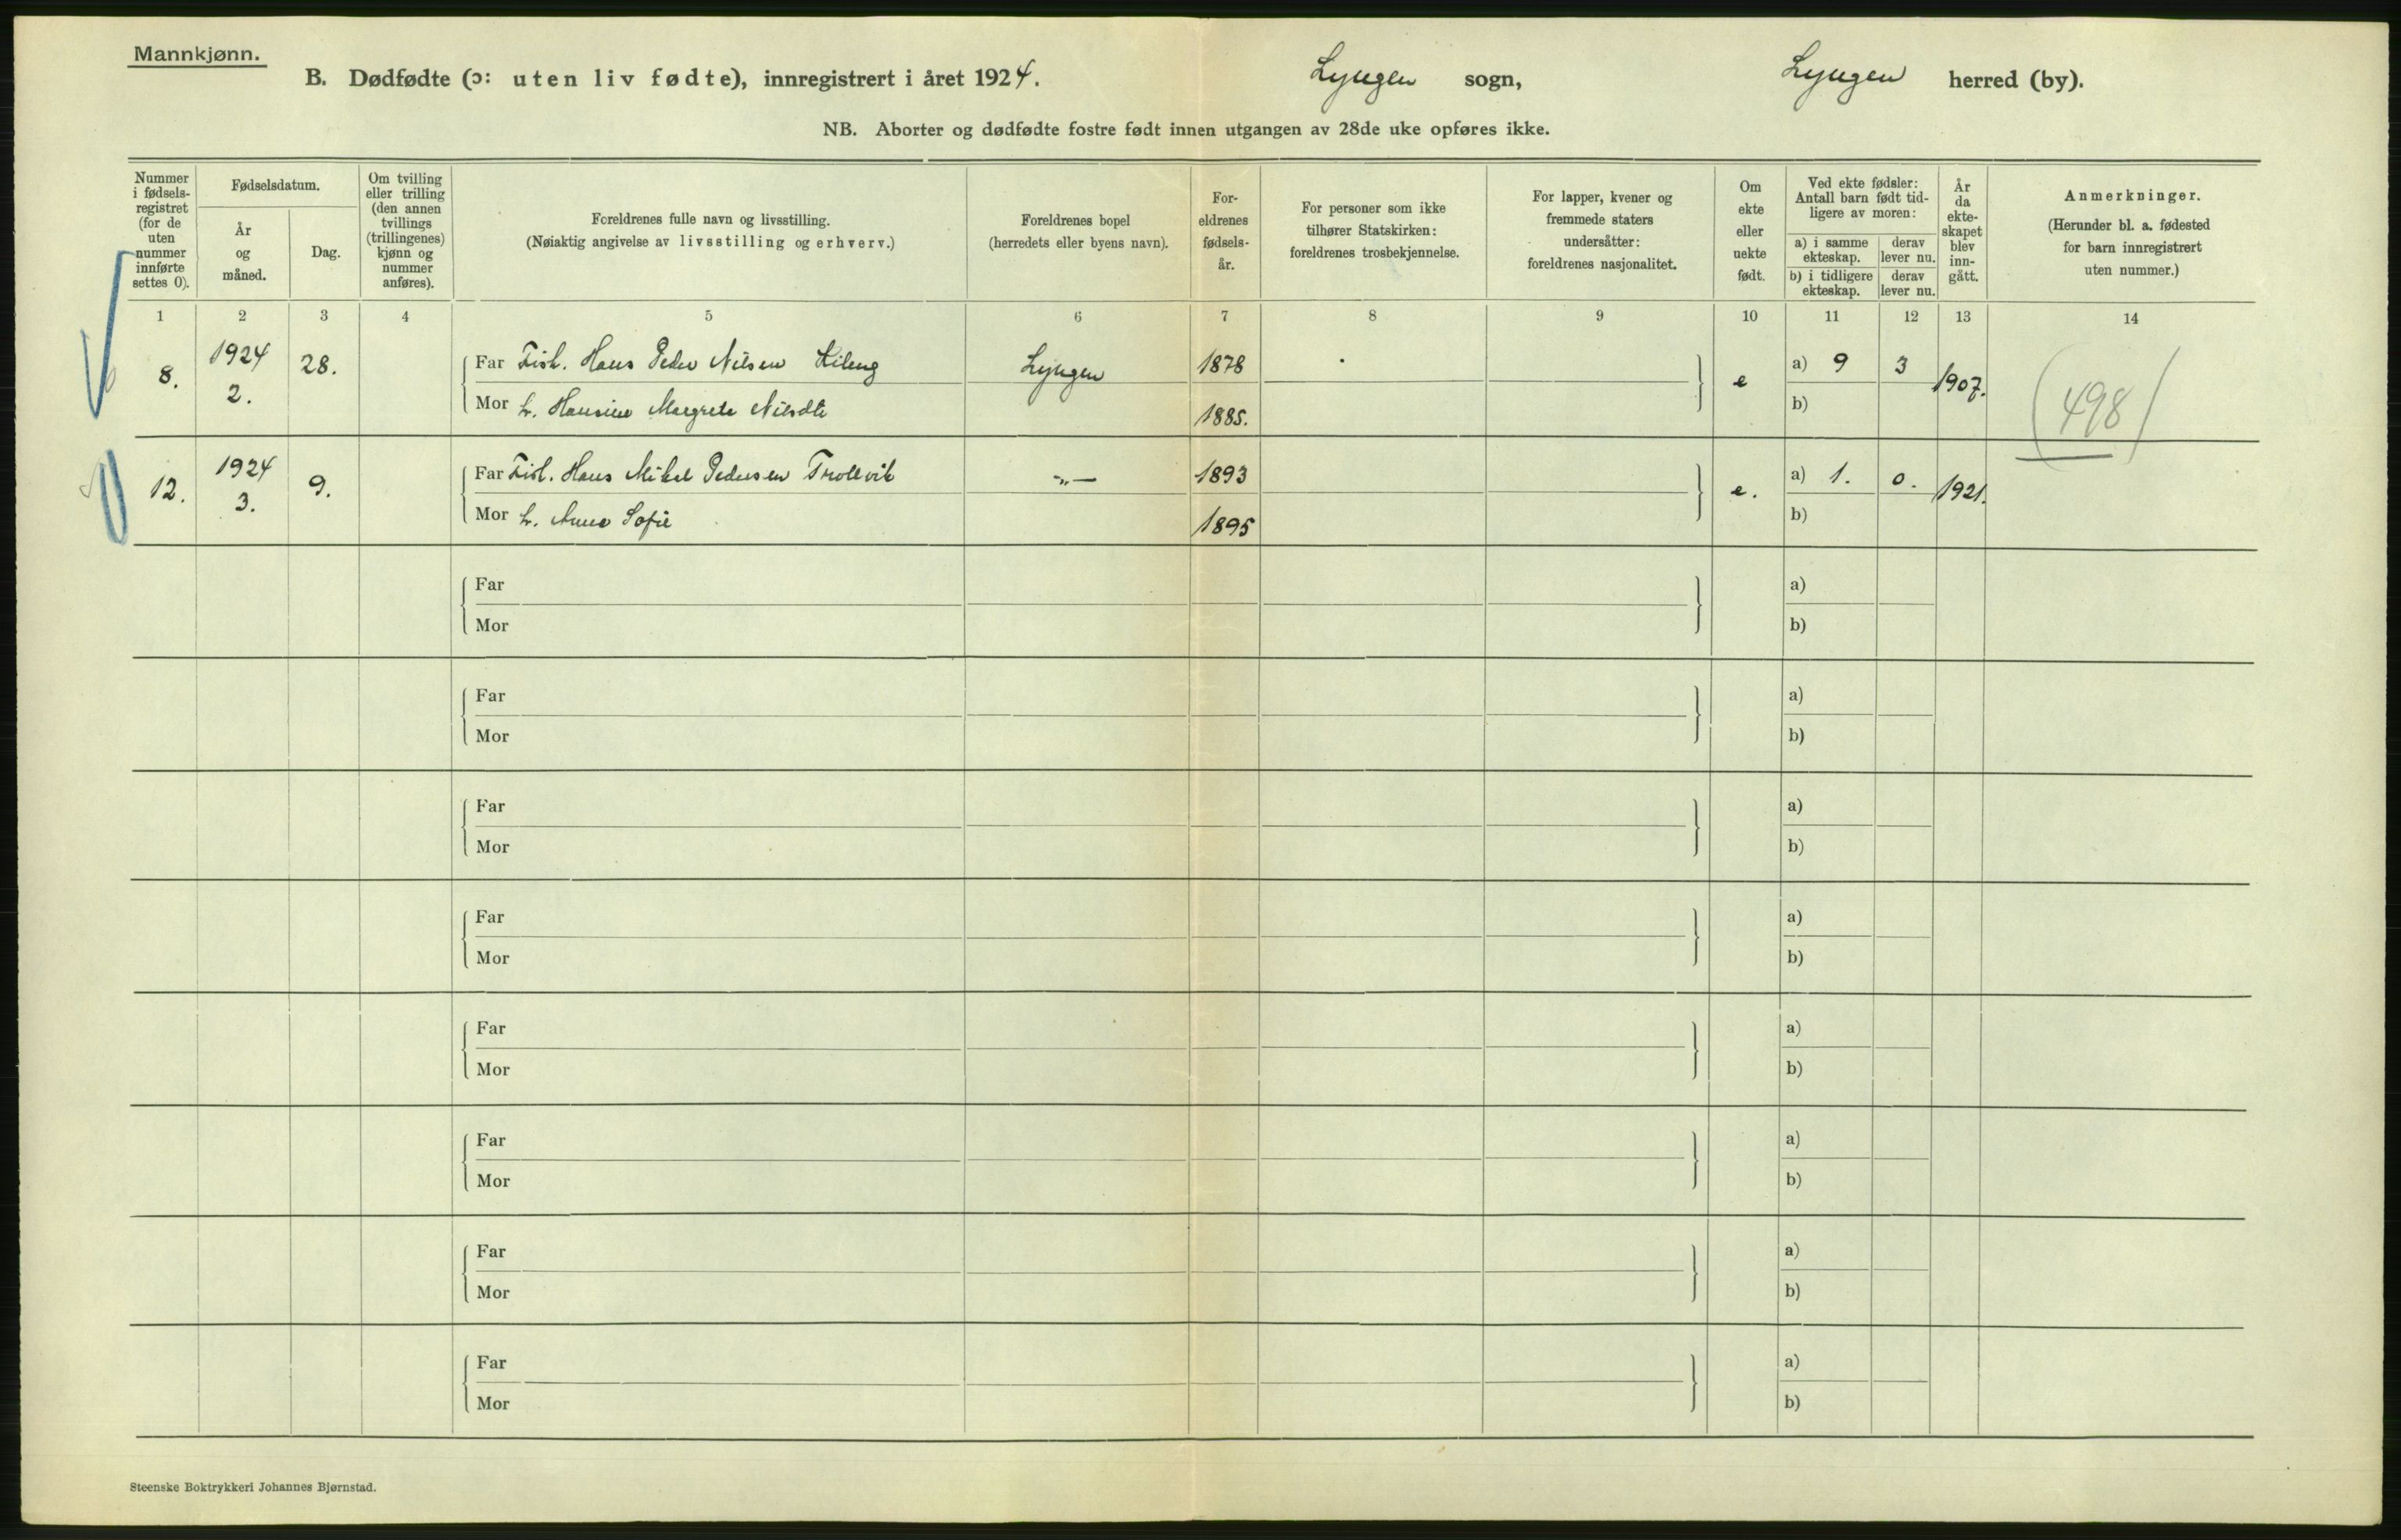 Mannkjønn.
B. Dødfødte (ɔ: uten liv fødte), innregistrert i året 1924. Lyngen sogn, Lyngen herred (by).
NB. Aborter og dødfødte fostre født innen utgangen av 28de uke opføres ikke.
Nummer
i fødsels-
registret
(for de
uten
nummer
innførte
settes 0).
Fødselsdatum.
År
og
måned.
Dag.
Om tvilling
eller trilling
(den annen
tvillings
(trillingenes)
kjønn og
nummer
anføres).
Foreldrenes fulle navn og livsstilling.
(Nøiaktig angivelse av livsstilling og erhverv.)
Foreldrenes bopel
(herredets eller byens navn).
For-
eldrenes
fødsels-
år.
For personer som ikke
tilhører Statskirken:
foreldrenes trosbekjennelse.
For lapper, kvener og
fremmede staters
undersåtter:
foreldrenes nasjonalitet.
Om
ekte
eller
uekte
født.
Ved ekte fødsler:
Antall barn født tid-
ligere av moren:
a) i samme
ekteskap.
derav
lever nu.
b) i tidligere
ekteskap.
derav
lever nu.
År
da
ekte-
skapet
blev
inn-
gått.
Anmerkninger.
(Herunder bl. a. fødested
for barn innregistrert
uten nummer.)
1 2 3 4 5 6 7 8 9 10 11 12 13 14
8. 1924 2. 28.
Far Fisk. Hans Peder Nilsen Kileng Lyngen 1878 e a) 9 3 1907.
Mor h. Hansine Margrete Nilsdtr 1885. b)
(498)
12. 1924 3. 9.
Far Fisk. Hans Mikal Pedersen Trollvik -"- 1893 e. a) 1. 0. 1921.
Mor h. Anna Sofie 1895 b)
Far a)
Mor b)
Far a)
Mor b)
Far a)
Mor b)
Far a)
Mor b)
Far a)
Mor b)
Far a)
Mor b)
Far a)
Mor b)
Far a)
Mor b)
Steenske Boktrykkeri Johannes Bjørnstad.